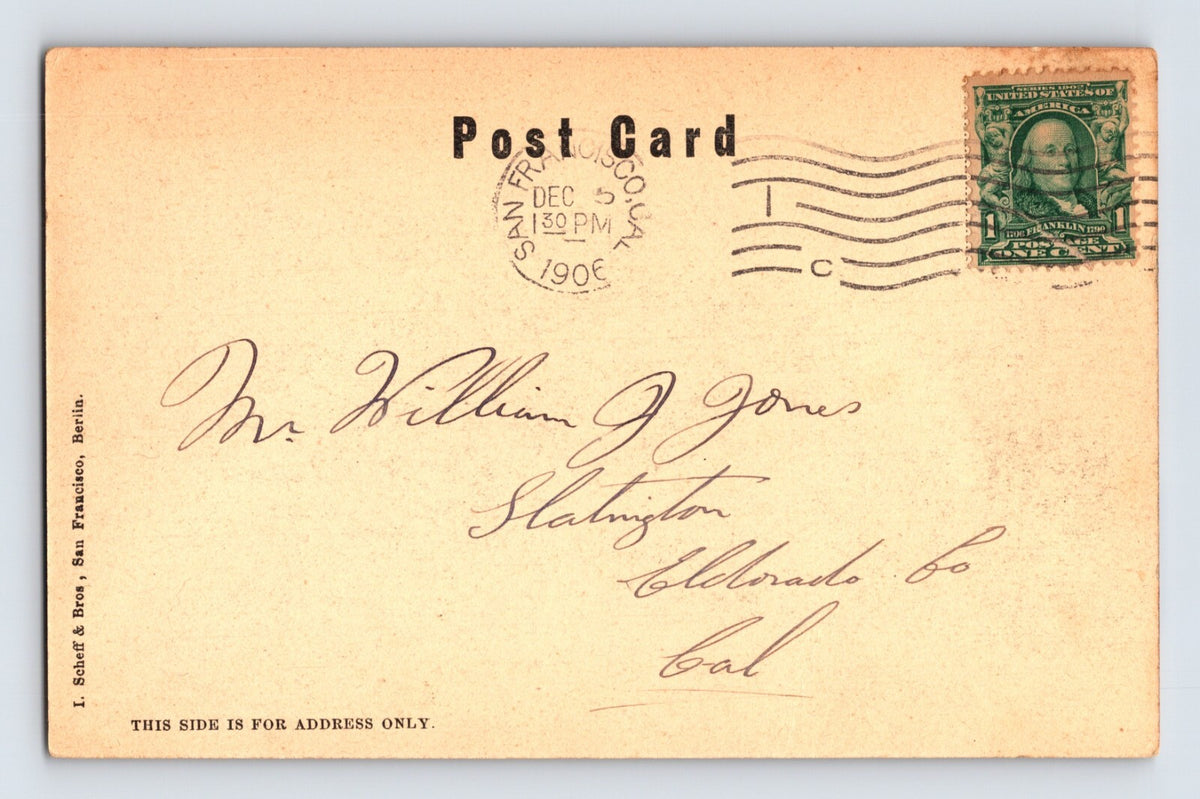 Post Card
SAN FRANCISCO, CAL.
DEC 5
1 30 PM
1906
1
C
SERIES 1902
UNITED STATES OF
AMERICA
1706 FRANKLIN 1790
1 1
POSTAGE
ONE CENT
Mr. William J Jones
Slatington
Eldorado Co
Cal
I. Scheff & Bros, San Francisco, Berlin.
THIS SIDE IS FOR ADDRESS ONLY.